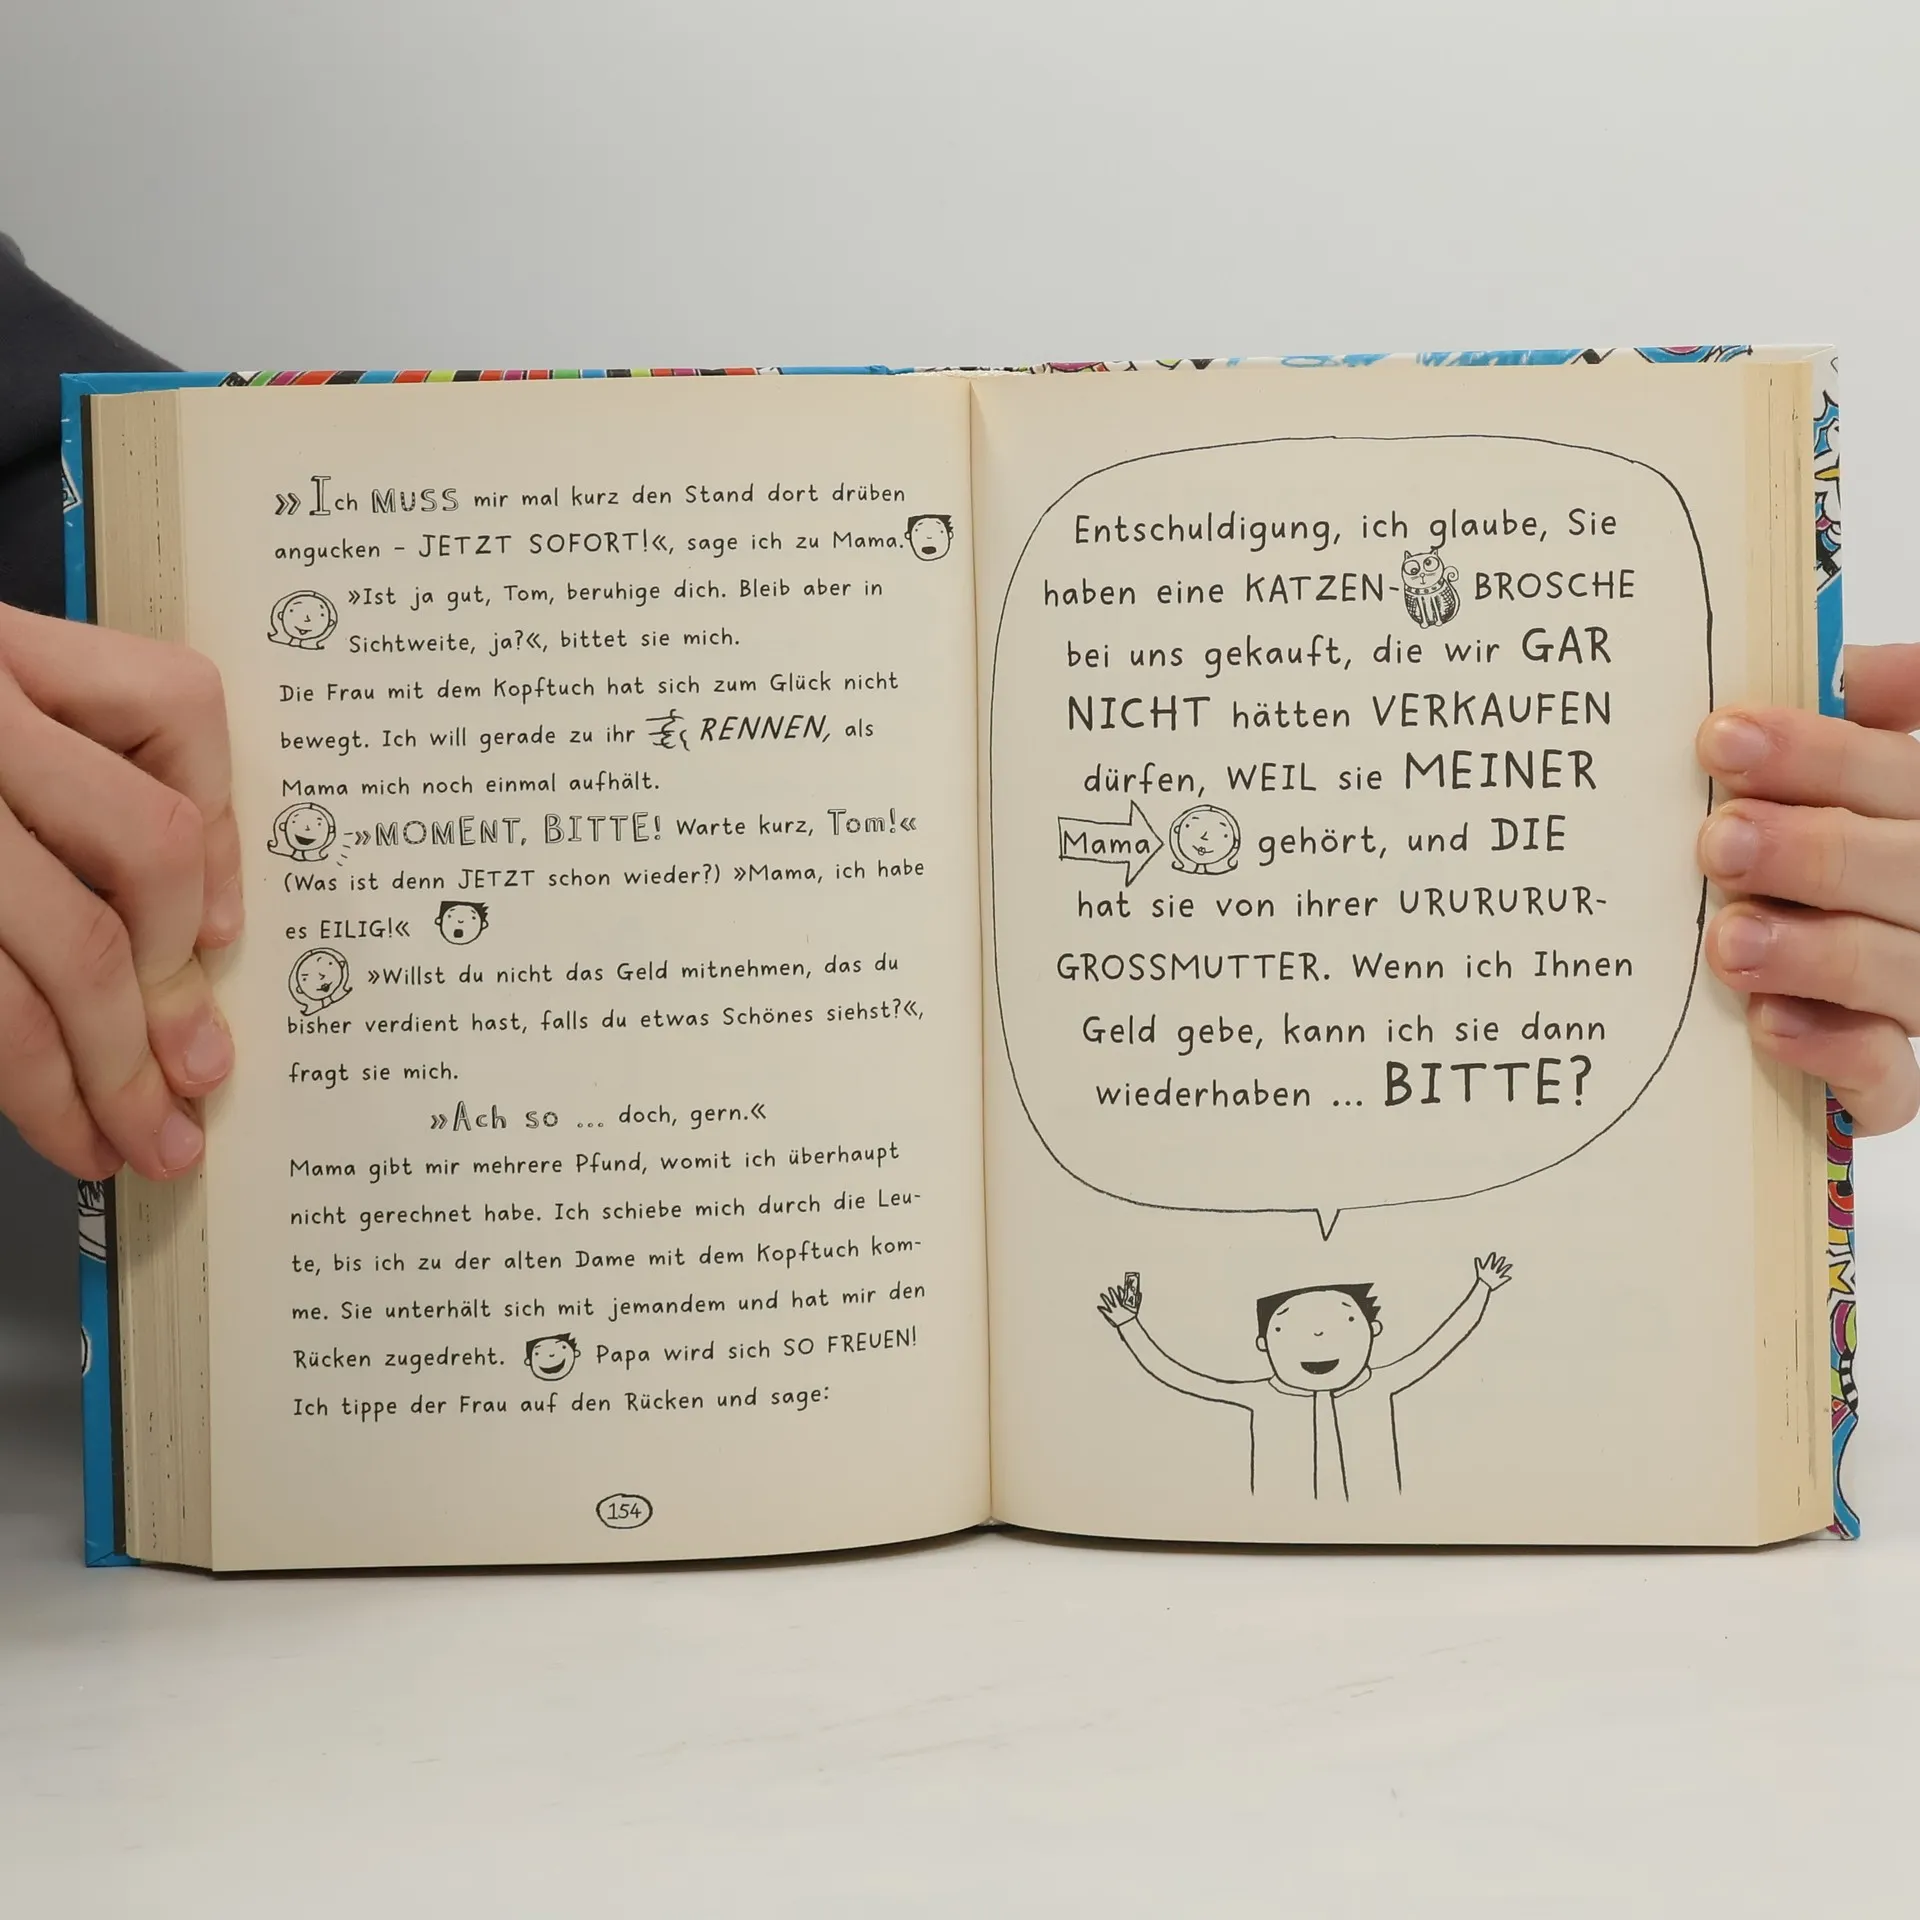 »Ich MUSS mir mal kurz den Stand dort drüben
angucken – JETZT SOFORT!«, sage ich zu Mama.
»Ist ja gut, Tom, beruhige dich. Bleib aber in
Sichtweite, ja?«, bittet sie mich.
Die Frau mit dem Kopftuch hat sich zum Glück nicht
bewegt. Ich will gerade zu ihr RENNEN, als
Mama mich noch einmal aufhält.
»MOMENT, BITTE! Warte kurz, Tom!«
(Was ist denn JETZT schon wieder?) »Mama, ich habe
es EILIG!«
»Willst du nicht das Geld mitnehmen, das du
bisher verdient hast, falls du etwas Schönes siehst?«,
fragt sie mich.
»Ach so ... doch, gern.«
Mama gibt mir mehrere Pfund, womit ich überhaupt
nicht gerechnet habe. Ich schiebe mich durch die Leu-
te, bis ich zu der alten Dame mit dem Kopftuch kom-
me. Sie unterhält sich mit jemandem und hat mir den
Rücken zugedreht. Papa wird sich SO FREUEN!
Ich tippe der Frau auf den Rücken und sage:
154
Entschuldigung, ich glaube, Sie
haben eine KATZEN- BROSCHE
bei uns gekauft, die wir GAR
NICHT hätten VERKAUFEN
dürfen, WEIL sie MEINER
Mama gehört, und DIE
hat sie von ihrer URURURUR-
GROSSMUTTER. Wenn ich Ihnen
Geld gebe, kann ich sie dann
wiederhaben ... BITTE?